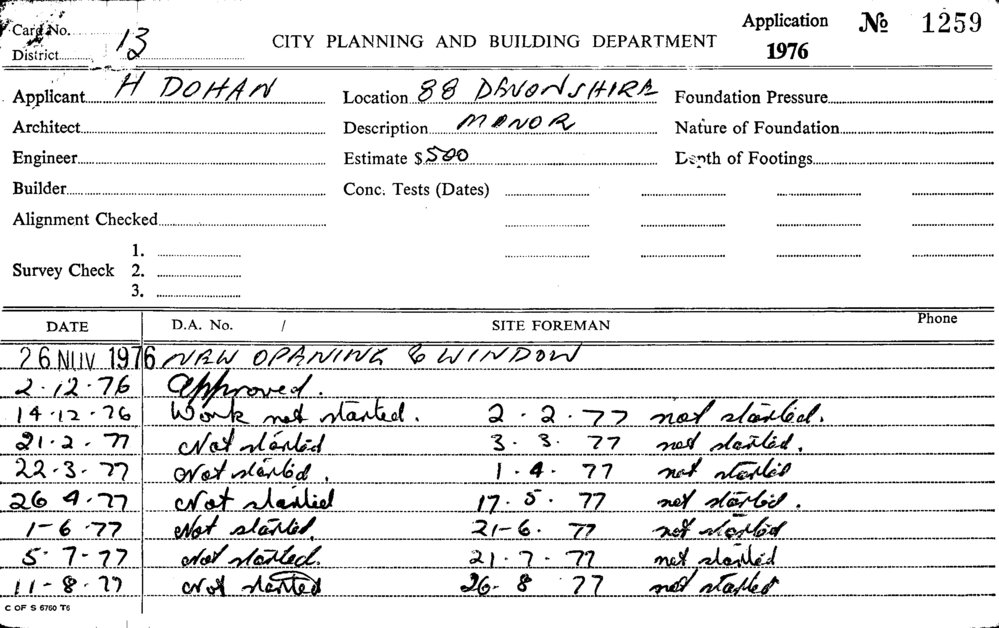 Card No.
District 13
CITY PLANNING AND BUILDING DEPARTMENT
Application 1976
№ 1259
Applicant H DOHAN
Location 88 DEVONSHIRE
Foundation Pressure
Architect
Description MANOR
Nature of Foundation
Engineer
Estimate $ 500
Depth of Footings
Builder
Conc. Tests (Dates)
Alignment Checked
Survey Check 1.
2.
3.
DATE D.A. No. / SITE FOREMAN Phone
26 NOV 1976 NEW OPENING & WINDOW
2.12.76 Approved.
14.12.76 Work not started. 2.2.77 not started.
21.2.77 Not started 3.3.77 not started.
22.3.77 Not started. 1.4.77 not started
26 4.77 Not started 17.5.77 not started.
1-6.77 Not started. 21-6.77 not started
5.7-77 Not started. 21.7.77 not started
11-8.77 Not started 26-8 77 not started
C OF S 6760 T6